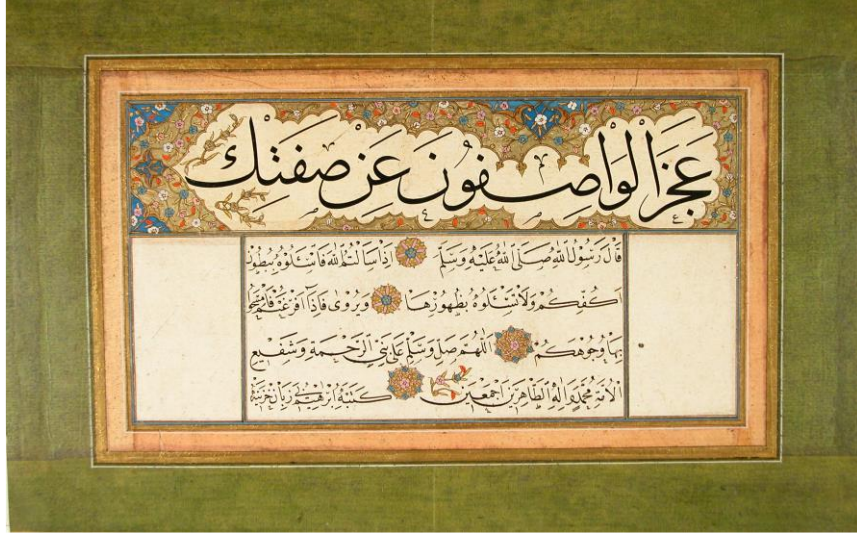 عَجَزَ الْوَاصِفُونَ عَنْ صِفَتِكَ
قَالَ رَسُولُ اللهِ صَلَّى اللهُ عَلَيْهِ وَسَلَّمَ اِذَا سَاَلْتُمُ اللهَ فَاسْئَلُوهُ بِبُطُونِ
اَكُفِّكُمْ وَلَا تَسْئَلُوهُ بِظُهُورِهَا وَيُرْوٰى فَاِذَا فَرَغْتُمْ فَامْسَحُوا
بِهَا وُجُوهَكُمْ اَللّٰهُمَّ صَلِّ وَسَلِّمْ عَلٰى نَبِيِّ الرَّحْمَةِ وَشَفِيعِ
الْاُمَّةِ مُحَمَّدٍ وَاٰلِهِ الطَّاهِرِينَ اَجْمَعِينَ كَتَبَهُ اِبْرٰهِيمُ